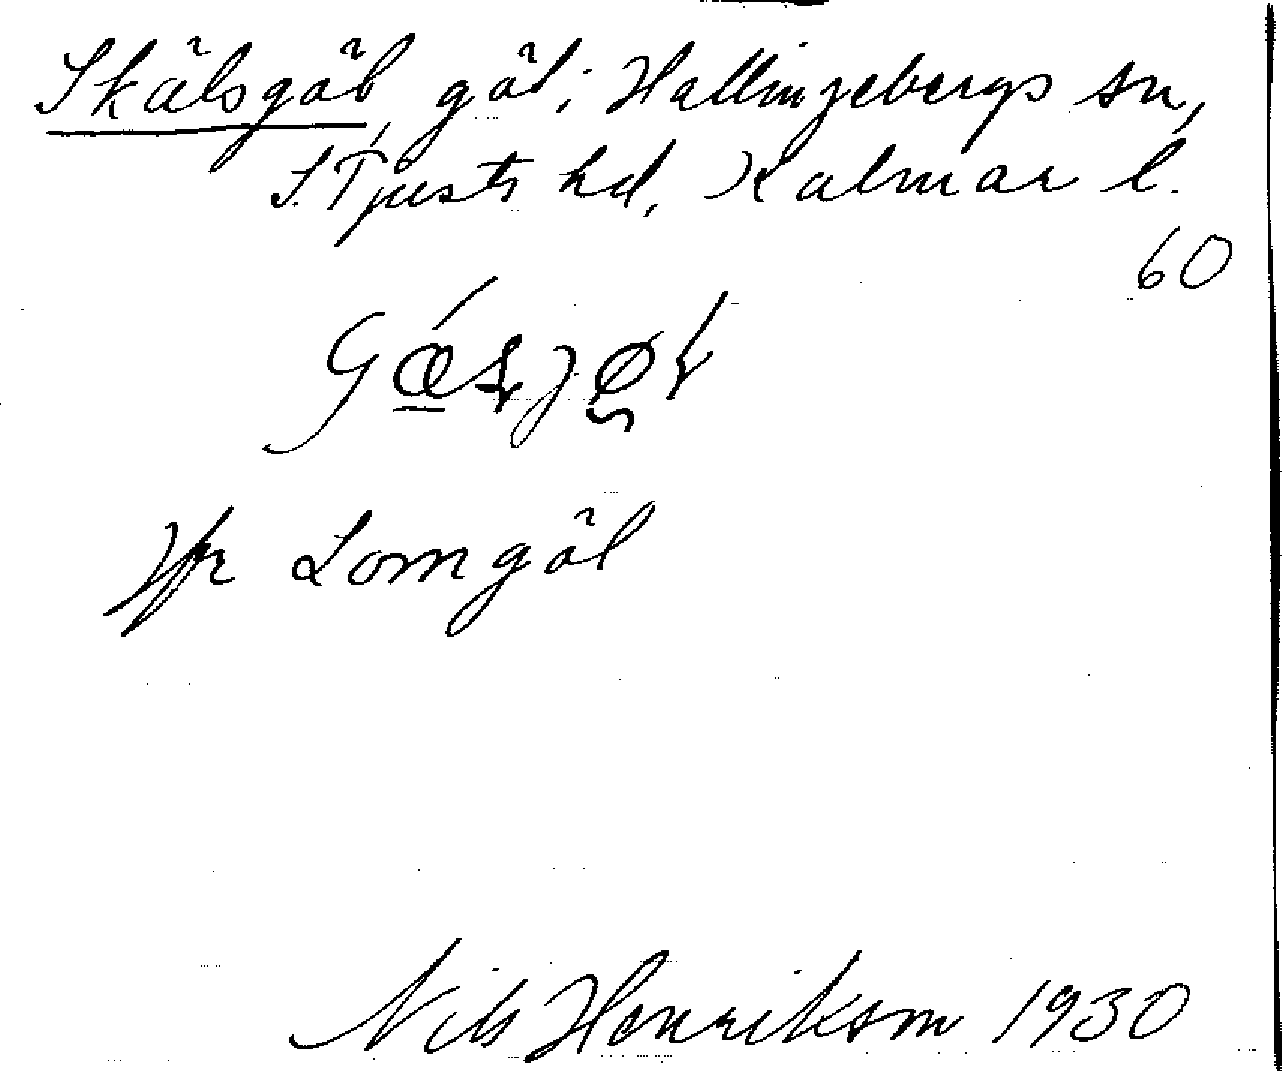 Skälsgöl, göl; Hallingebergs sn,
S. Tjusts hd, Kalmar l.
60
Jfr Lomgöl
Nils Henrikson 1930